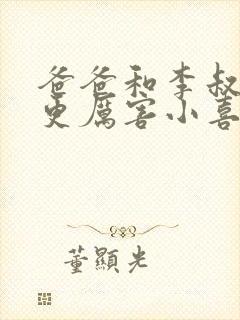 爸爸和李叔
更厲害小喜
董顯光